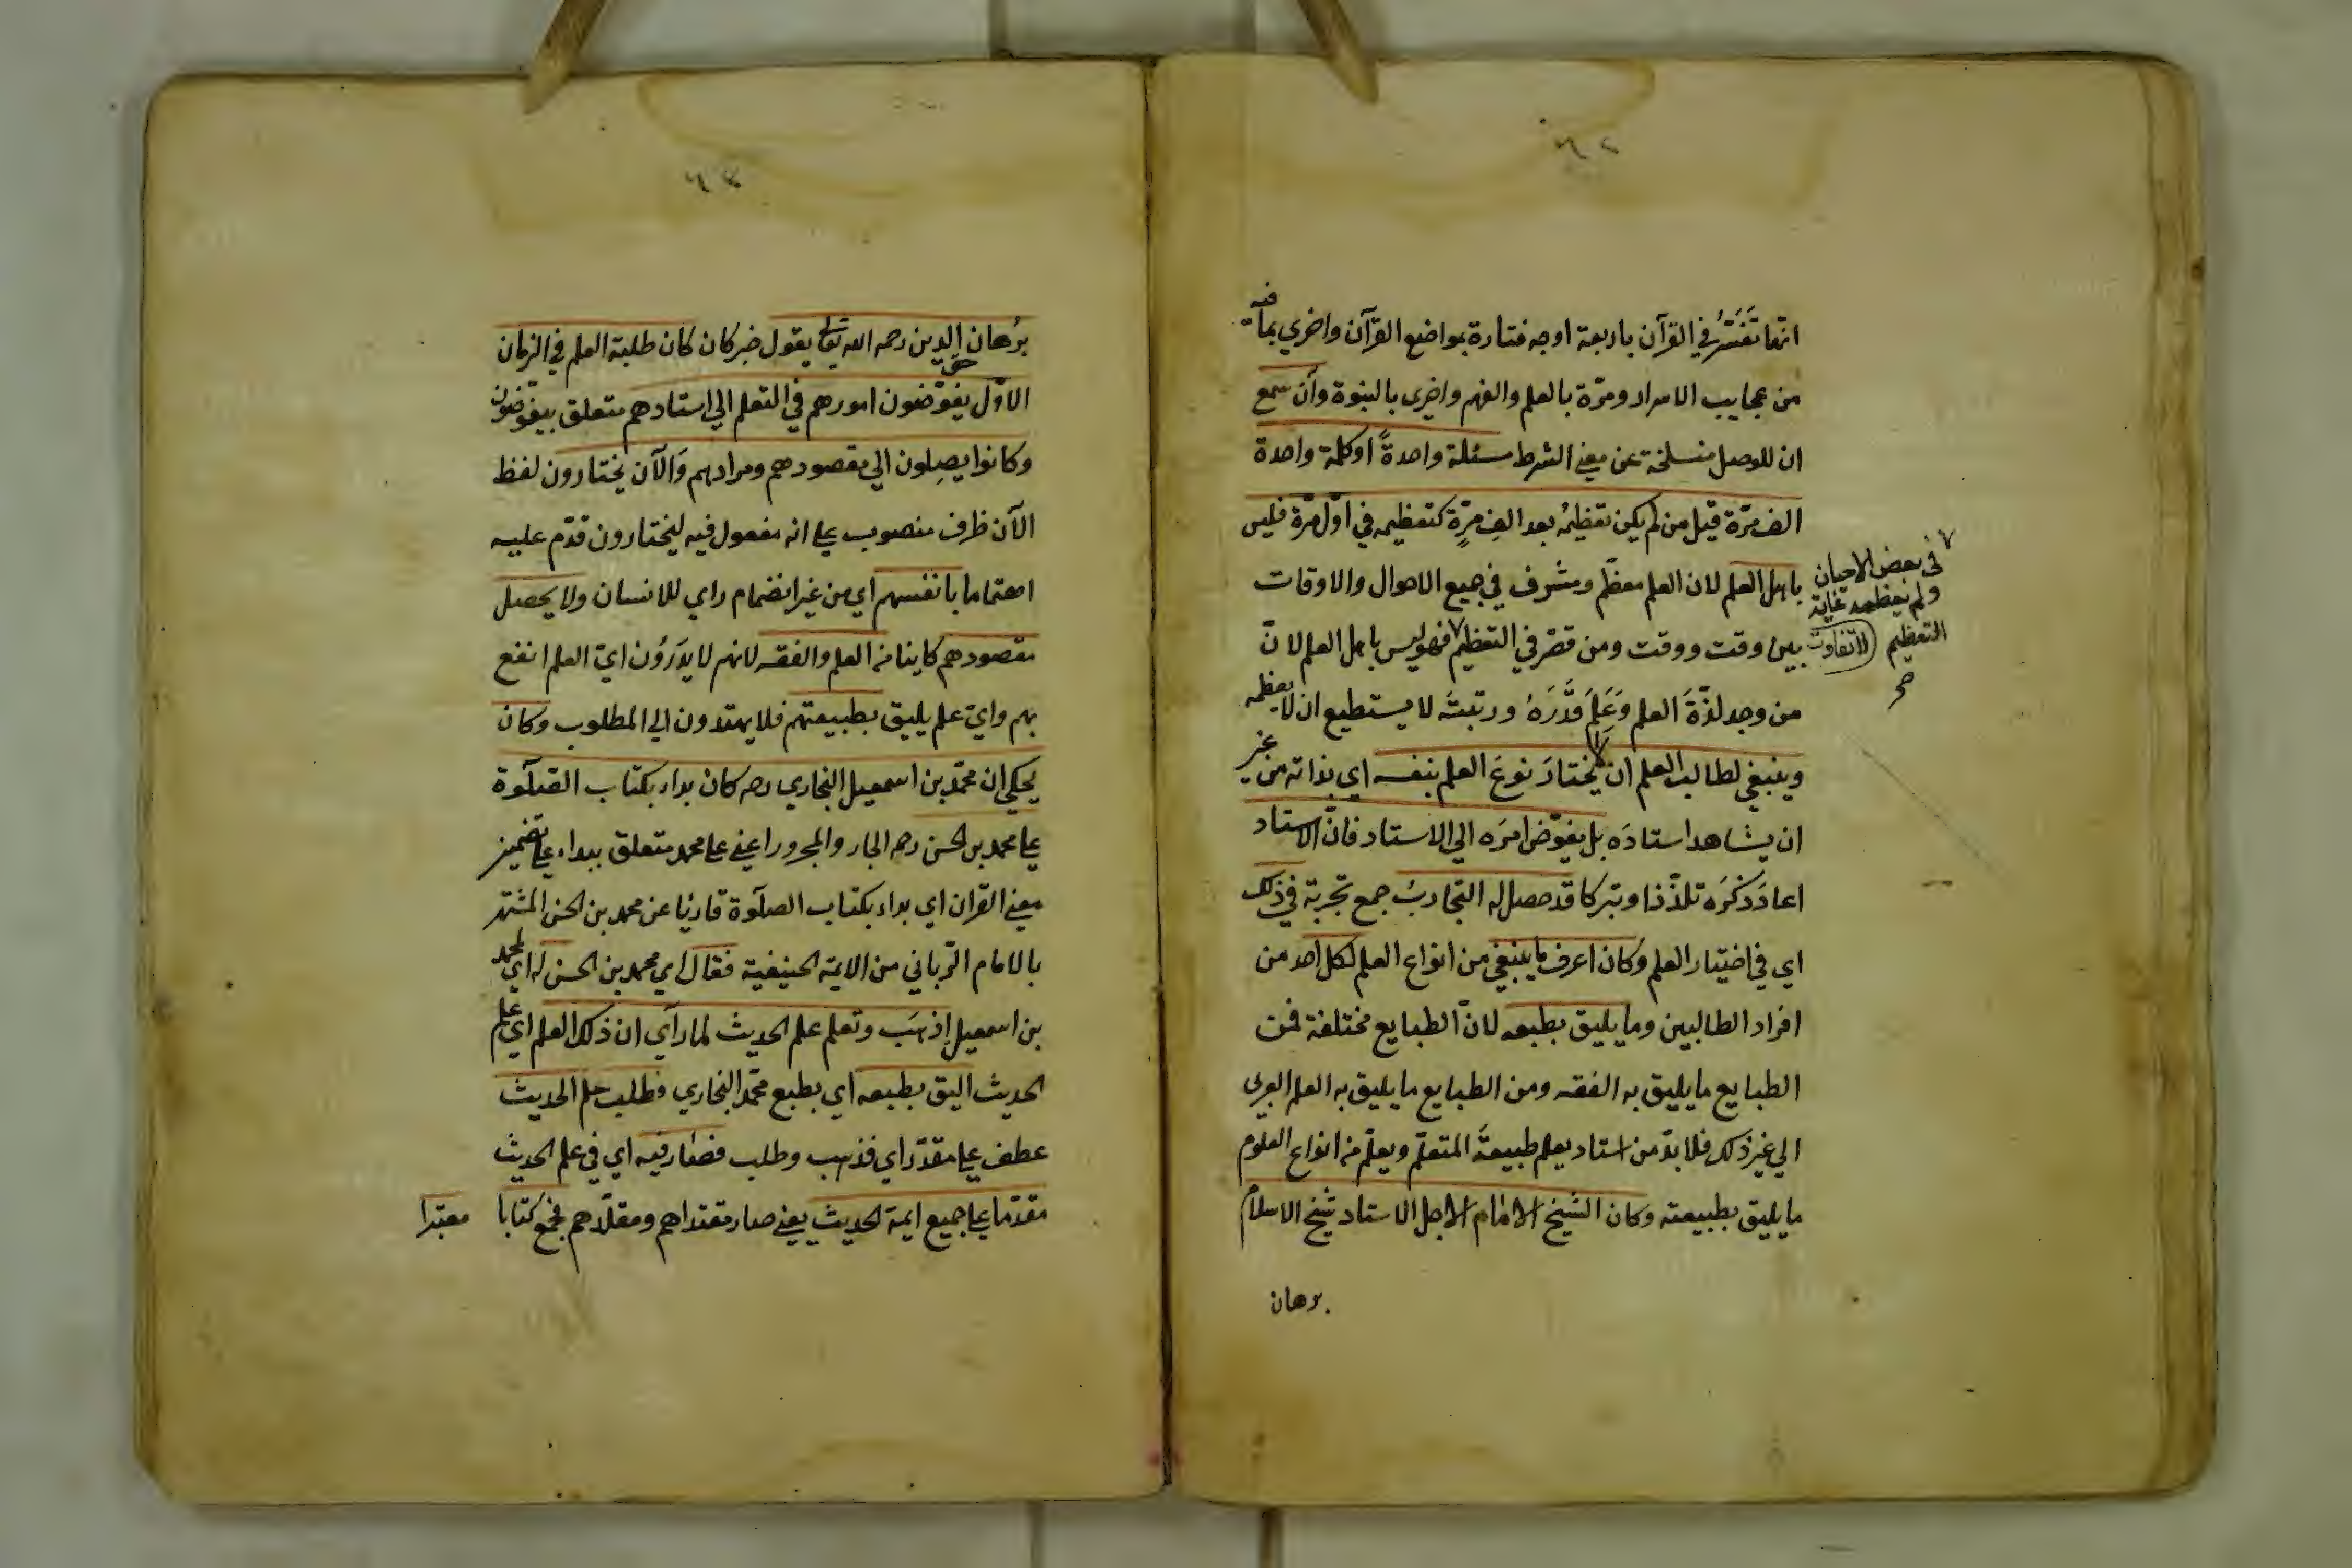 ٦٢
انها تفسّر في القرآن باربعة اوجه فتارة بمواضع القرآن واخري بما فيه
من عجايب الاسرار ومرّة بالعلم والفهم واخرى بالنبوة وان سمع
ان للوصل منسلخة عن معنى الشرط مسئلة واحدةً او كلمة واحدة
الف مرّة قيل من لم يكن تعظيمُه بعد الفِ مرّةٍ كتعظيمه في اوّل مرّة فليس
باهل العلم لان العلم معظّم ومشرف في جميع الاحوال والاوقات
لا تفاوت بين وقت ووقت ومن قصّر في التعظيم فهو ليس باهل العلم لانّ
في بعض الاحيان
ولم يعظمه غاية
التعظيم
صح
من وجد لذّةَ العلم وَعَلِمَ قَدْرَهُ ورتبتَه لا يستطيع ان لا يعظمه
وينبغي لطالب العلم ان لا يختارَ نوعَ العلم بنفسه اي بذاته من غير
ان يشاهد استادَه بل يفوّض امرَه الي الاستاد فانّ الاستاد
اعادَ ذكرَه تلذّذا وتبركا قد حصل له التجاربُ جمع تجربة في ذلك
اي في اختيار العلم وكان اعرف ما ينبغي من انواع العلم لكل احد من
افراد الطالبين وما يليق بطبعه لانّ الطبايع مختلفة فمن
الطبايع ما يليق به الفقه ومن الطبايع ما يليق به العلم العربى
الي غير ذلك فلا بدّ من استاد يعلم طبيعةَ المتعلّم ويعلّم من انواع العلوم
ما يليق بطبيعته وكان الشيخ الامام الاجل الاستاد شيخ الاسلام
برهان
٦٣
برُهان الدين رحمه الله تعالى يقول خبر كان كان طلبة العلم في الزمان
الاوّل يفوّضون امورهم في التعلم الي استادهم متعلق بيفوّضون
وكانوا يصِلون الي مقصودهم ومرادهم وَالآن يختارون لفظ
الآن ظرف منصوب على انه مفعول فيه ليختارون قدّم عليه
اهتماما بانفسهم اي من غير انضمام راي للانسان ولا يحصل
مقصودهم كاينا من العلم والفقه لانهم لا يدَرُون ايّ العلم انفع
بهم وايّ علم يليق بطبيعتهم فلا يهتدون الي المطلوب وكان
يحكي ان محمّد بن اسمعيل البخاري رحمه كان بداء بكتاب الصلوة
على محمد بن الحسن رحمه الجار والمجرور اعني على محمد متعلق ببداء على تضمين
معنى القران اي بداء بكتاب الصلوة قارئا عن محمد بن الحسن المشتهر
بالامام الرّباني من الايمة الحنيفية فقال اي محمد بن الحسن له اي لمحمد
بن اسمعيل إذهَب وتعلم علم الحديث لما رآي ان ذلك العلم اي علم
الحديث اليق بطبعه اي بطبع محمّد البخاري فطلب علم الحديث
عطف على مقدّر اي فذهب وطلب فصار فيه اي في علم الحديث
مقدّما على جميع ايمة الحديث يعنى صار مقتداهم ومقلّدهم فجمع كتابا معتبرا